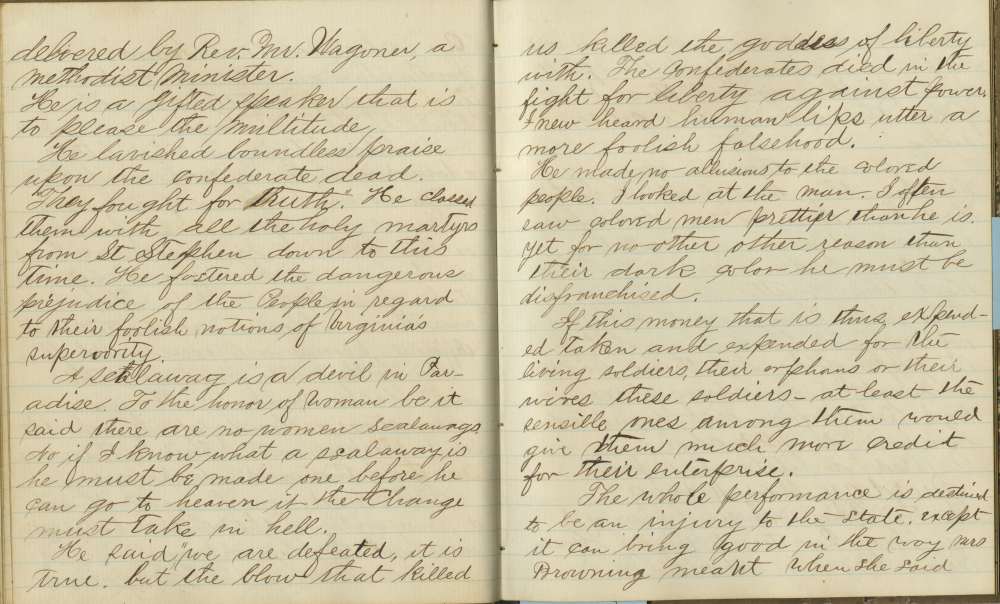 delivered by Rev. Mr. Wagoner, a
methodist minister.
He is a gifted speaker that is
to please the multitude,
He lavished boundless praise
upon the confederate dead.
"They fought for truth". He classed
them with all the holy martyrs
from St Stephen down to this
time. He fostered the dangerous
prejudice of the People in regard
to their foolish notions of Virginia's
superiority.
A scalaway is a devil in Par-
adise. To the honor of woman be it
said there are no women Scalawags.
No if I know what a scalaway is
he must be made one before he
can go to heaven if the Change
must take in hell.
He said "we are defeated, it is
true. but the blow that killed
us killed the goddess of liberty
with. The Confederates died in the
fight for liberty against power.
I never heard human lips utter a
more foolish falsehood.
He made no allusions to the colored
people. I looked at the man. I often
saw colored men prettier than he is.
yet for no other other reason than
their dark color he must be
disfranchised.
If this money that is thus expend-
ed taken and expended for the
living soldiers, their orphans or their
wives these soldiers - at least the
sensible ones among them would
give them much more credit
for their enterprise.
The whole performance is destined
to be an injury to the state. except
it can bring good in the way Mrs
Browning meant when she said